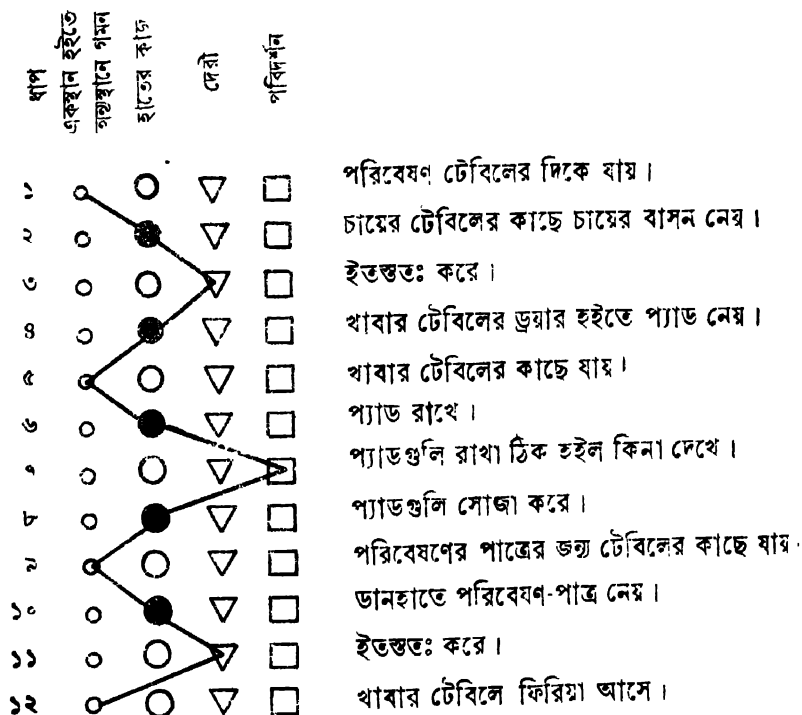 ধাপ
একস্থান হইতে
অন্যস্থানে গমন
হাতের কাজ
দেরী
পরিদর্শন
১ পরিবেষণ টেবিলের দিকে যায়।
২ চায়ের টেবিলের কাছে চায়ের বাসন নেয়।
৩ ইতস্ততঃ করে।
৪ খাবার টেবিলের ড্রয়ার হইতে প্যাড নেয়।
৫ খাবার টেবিলের কাছে যায়।
৬ প্যাড রাখে।
৭ প্যাডগুলি রাখা ঠিক হইল কিনা দেখে।
৮ প্যাডগুলি সোজা করে।
৯ পরিবেষণের পাত্রের জন্য টেবিলের কাছে যায়।
১০ ডানহাতে পরিবেষণ-পাত্র নেয়।
১১ ইতস্ততঃ করে।
১২ খাবার টেবিলে ফিরিয়া আসে।